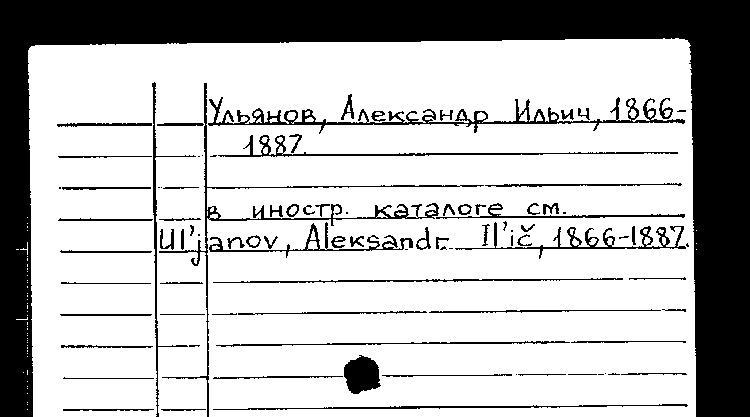 Ульянов, Александр Ильич, 1866-
1887.
в иностр. каталоге см.
Ul'janov, Aleksandr Il'ič, 1866-1887.